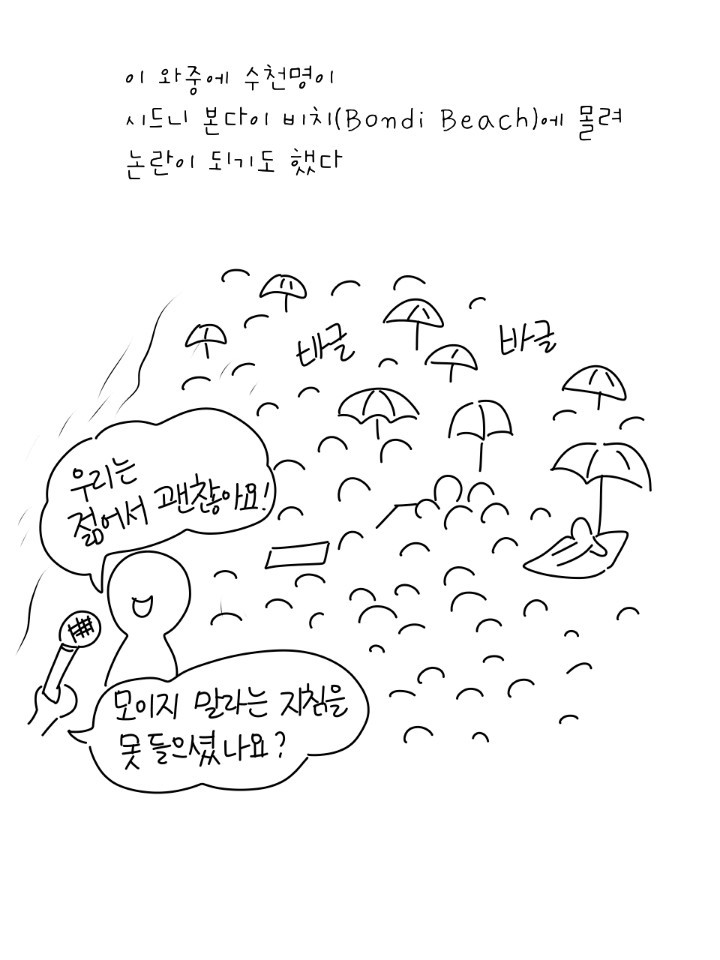 이 와중에 수천명이
시드니 본다이 비치(Bondi Beach)에 몰려
논란이 되기도 했다
바글 바글
우리는
젊어서 괜찮아요!
모이지 말라는 지침을
못 들으셨나요?